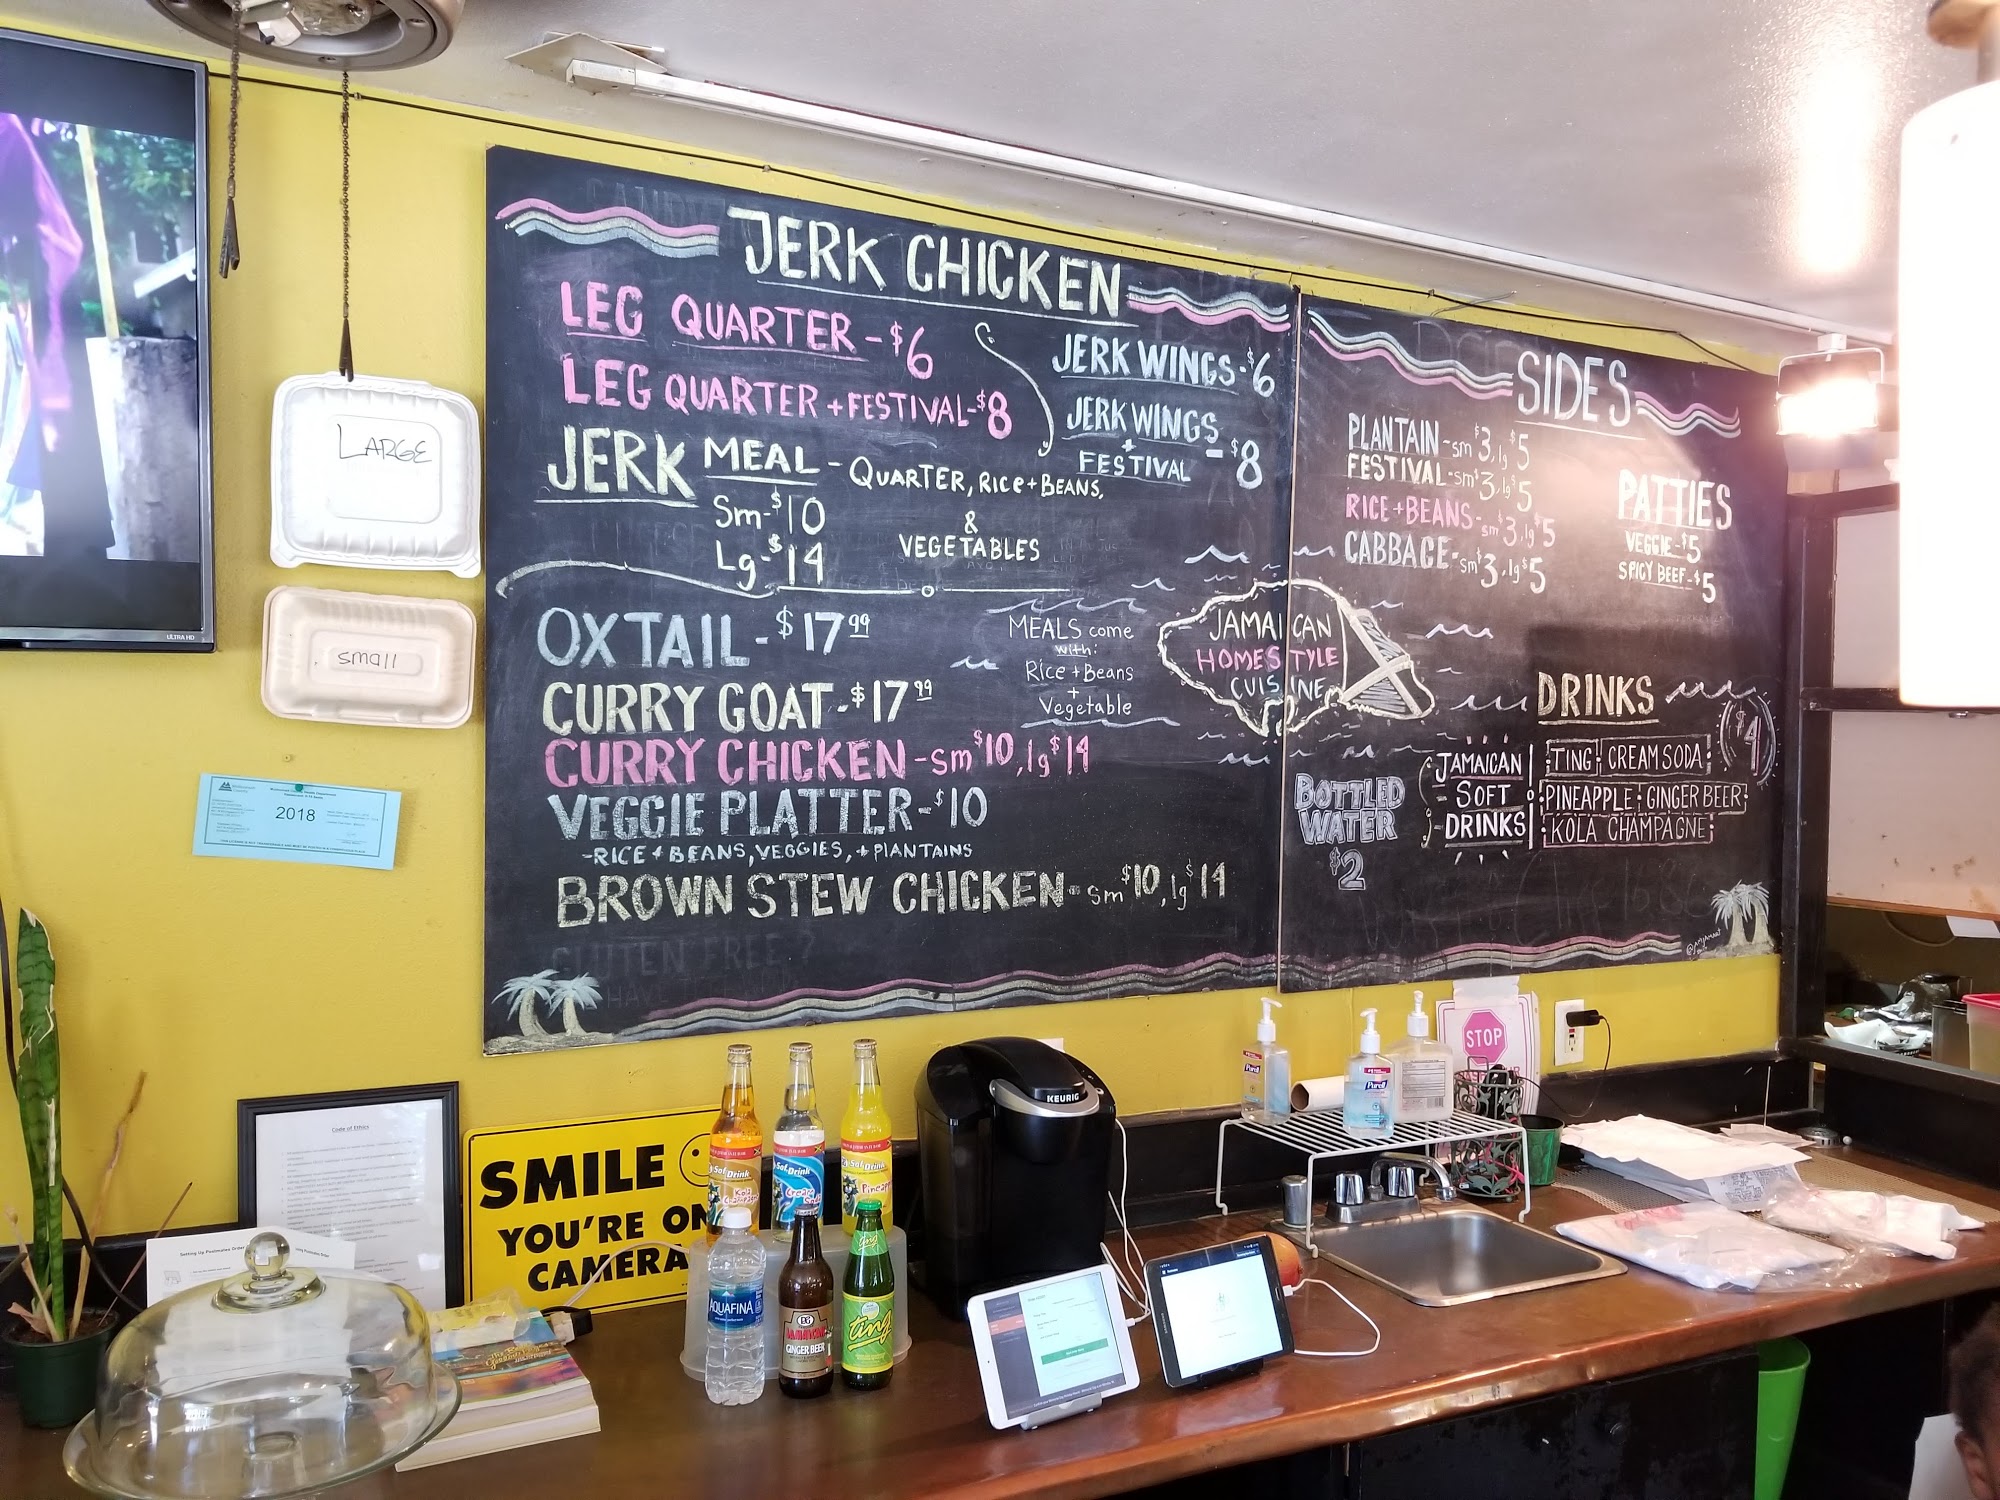 JERK CHICKEN
LEG QUARTER - $6
LEG QUARTER + FESTIVAL - $8
JERK WINGS - $6
JERK WINGS
+
FESTIVAL - $8
JERK MEAL - QUARTER, RICE + BEANS,
&
VEGETABLES
Sm - $10
Lg - $14
OXTAIL - $17.99
CURRY GOAT - $17.99
CURRY CHICKEN - sm $10, lg $14
VEGGIE PLATTER - $10
- RICE + BEANS, VEGGIES, + PLANTAINS
BROWN STEW CHICKEN - sm $10, lg $14
GLUTEN FREE?
MEALS come
with:
Rice + Beans
+
Vegetable
JAMAICAN
HOMESTYLE
CUISINE
SIDES
PLANTAIN - sm $3, lg $5
FESTIVAL - sm $3, lg $5
RICE + BEANS - sm $3, lg $5
CABBAGE - sm $3, lg $5
PATTIES
VEGGIE - $5
SPICY BEEF - $5
DRINKS
$4
JAMAICAN
SOFT
DRINKS
TING CREAM SODA
PINEAPPLE GINGER BEER
KOLA CHAMPAGNE
BOTTLED
WATER
$2
ULTRA HD
LARGE
small
2018
Code of Ethics
SMILE
YOU'RE ON
CAMERA
KEURIG
AQUAFINA
JAMAICAN
GINGER BEER
Ting
ting
Purell
Purell
STOP